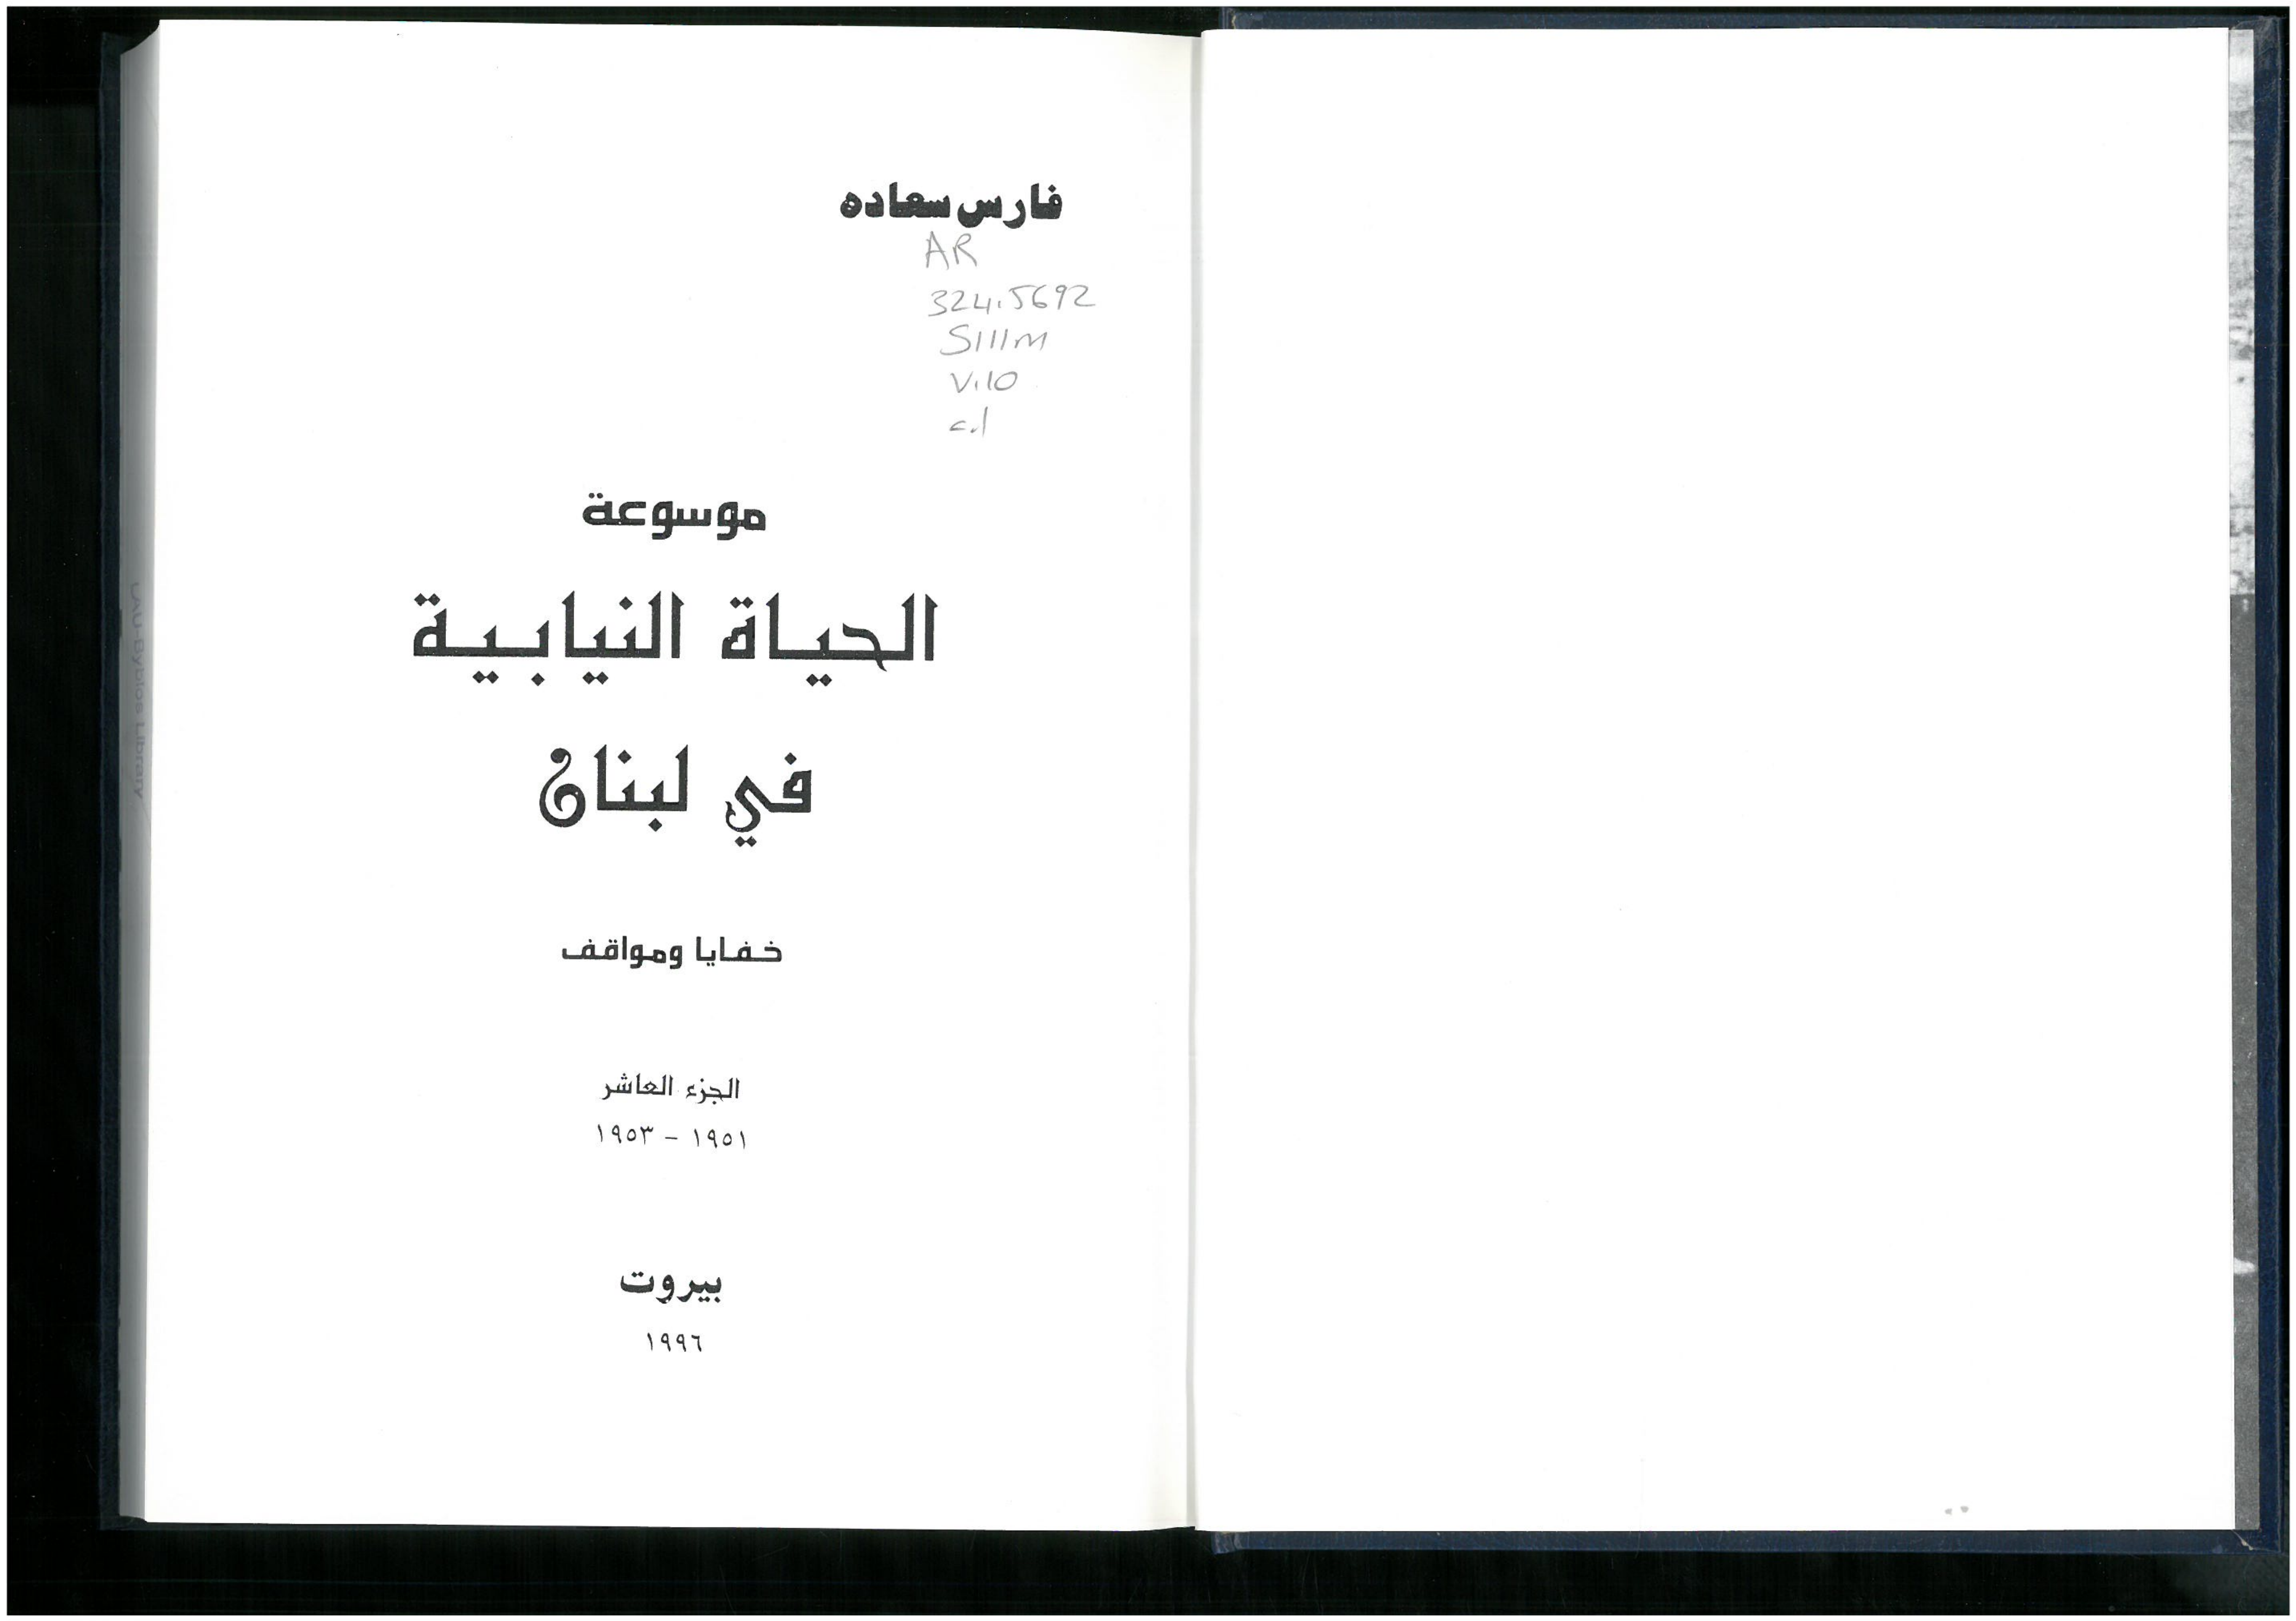 فارس سعاده
AR
324.5692
S111m
V.10
c.1
موسوعة
الحياة النيابية
في لبنان
خفايا ومواقف
الجزء العاشر
١٩٥١ - ١٩٥٣
بيروت
١٩٩٦
LAU Byblos Library